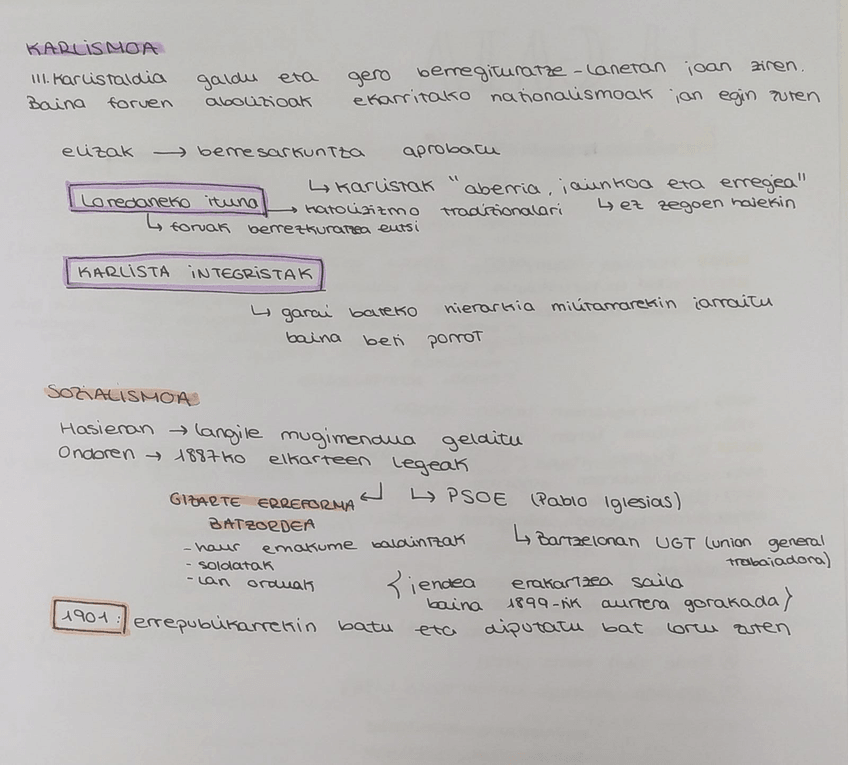 KARLISMOA
III. Karlistaldia galdu eta gero berregituratze-lanetan joan ziren.
Baina foruen abolizioak ekarritako nationalismoak jan egin zuten
elizak → berresarkuntza aprobatu
↳ Karlistak "aberria, jaunkoa eta erregea"
Loredaneko ituna → katolizizmo tradizionalari ↳ ez zegoen haiekin
↳ foruak berrezkuratzea eutsi
KARLISTA INTEGRISTAK
↳ garai bateko hierarkia militarrarekin jarraitu
baina beti porrot
SOZIALISMOA
Hasieran → langile mugimendua gelditu
Ondoren → 1887ko elkarteen legeak
GIZARTE ERREFORMA ↲ ↳ PSOE (Pablo Iglesias)
BATZORDEA
- haur emakume baldintzak ↳ Bartzelonan UGT (union general
- soldatak trabajadora)
- lan orduak {jendea erakartzea saila
baina 1899-tik aurrera gorakada}
1901: errepublikarrekin batu eta diputatu bat lortu zuten